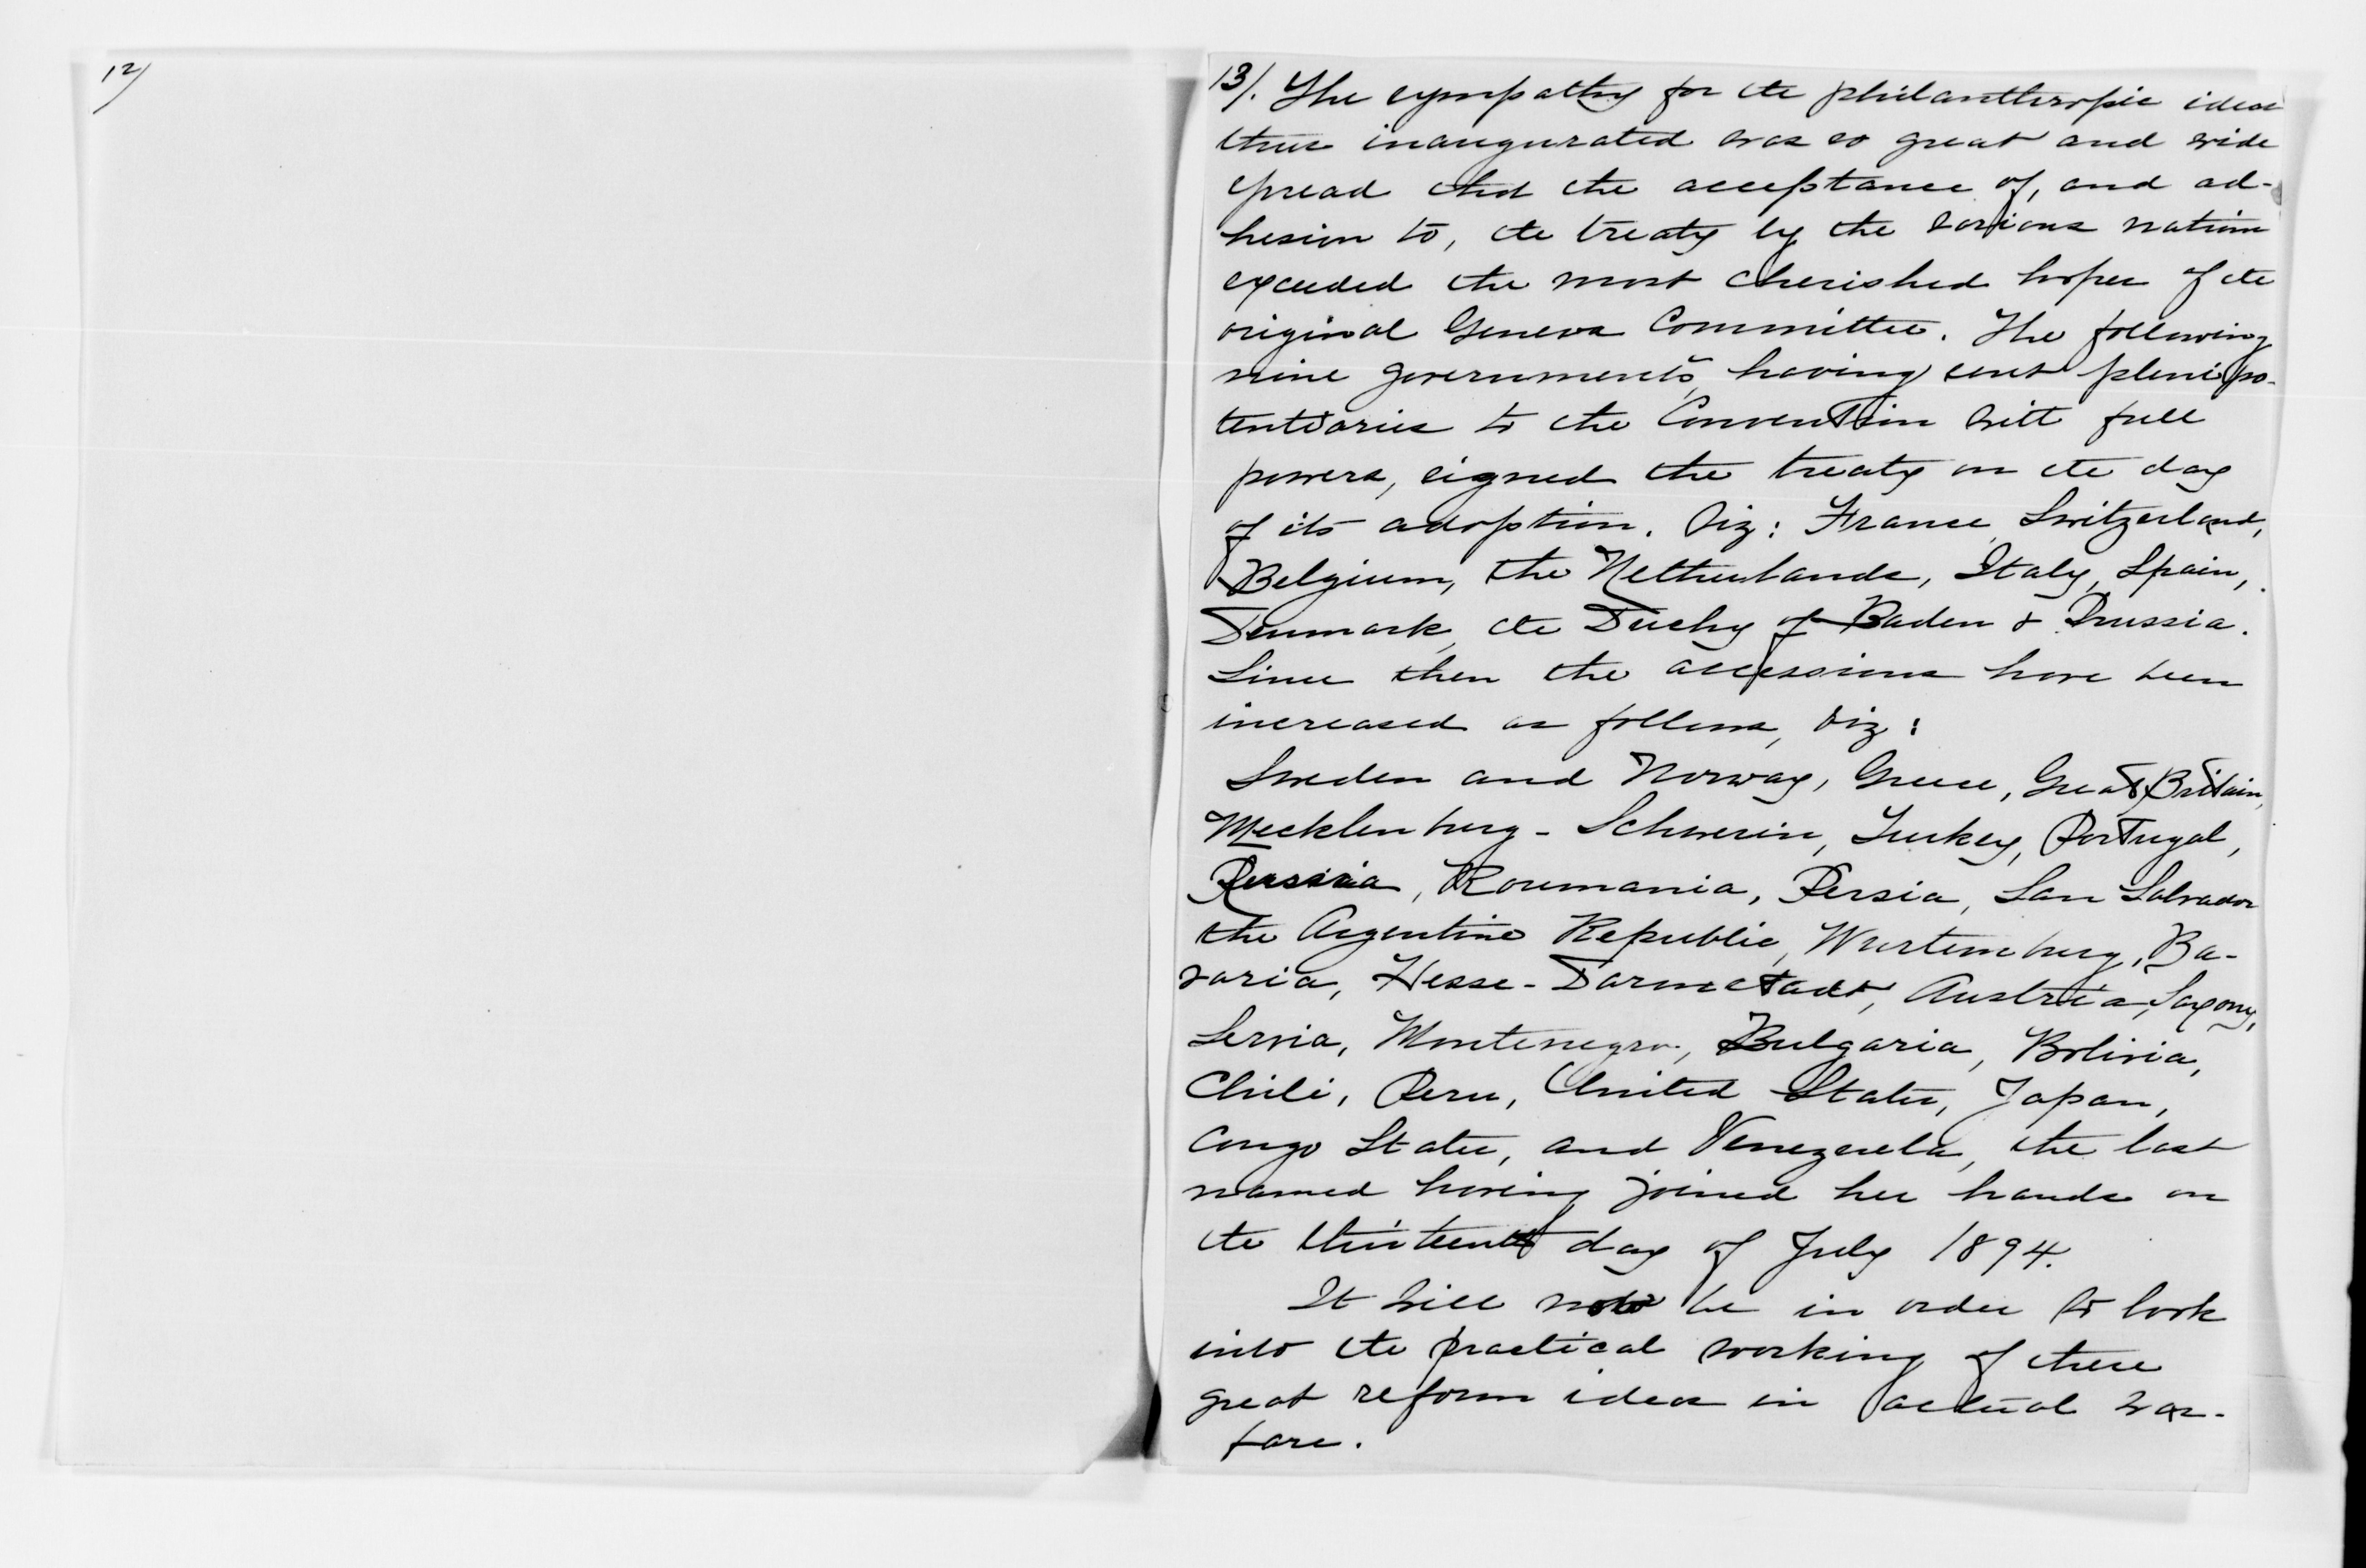 12/
13/. The sympathy for the philanthropic idea
thus inaugurated was so great and wide
spread that the acceptance of, and ad-
hesion to, the treaty by the various nations
exceeded the most cherished hopes of the
original Geneva Committee. The following
nine governments, having sent plenipo-
tentiaries to the Convention with full
powers, signed the treaty on the day
of its adoption. Viz: France, Switzerland,
Belgium, the Netherlands, Italy, Spain,
Denmark, the Duchy of Baden & Prussia.
Since then the accessions have been
increased as follows, viz:
Sweden and Norway, Greece, Great Britain,
Mecklenburg-Schwerin, Turkey, Portugal,
Russia, Roumania, Persia, San Salvador
the Argentine Republic, Wurtemburg, Ba-
varia, Hesse-Darmstadt, Austria, Saxony,
Servia, Montenegro, Bulgaria, Bolivia,
Chili, Peru, United States, Japan,
Congo States, and Venezuela, the last
named having joined her hands on
the thirteenth day of July 1894.
It will now be in order to look
into the practical working of these
great reform ideas in actual war-
fare.